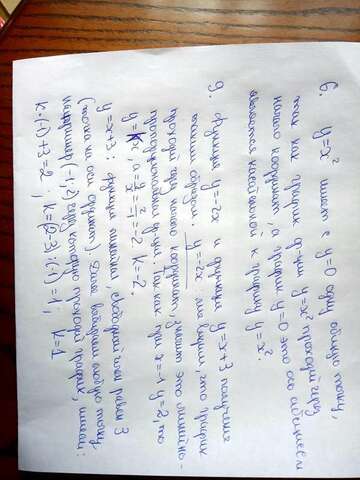 6. y=x² имеет с y=0 одну общую точку,
так как график функц. y=x² проходит через
начало координат, а график y=0 это ось абсцисс и
является касательной к графику y=x².
9. Функции y=-2x и функция y=x+3 получены
таким образом: y=-2x: мы видим, что график
проходит через начало координат, значит это
пропорциональная функ. Так как при x=-1 y=2, то
y=kx, a= 2/-1 =-2 k=-2.
y=x+3: функция линейная, свободный член равен 3
(видно из по функции). Далее выберем любую точку,
например (-1;2) через которую проходит график, имеем:
k·(-1)+3=2; k=(2-3):(-1)=1; k=1